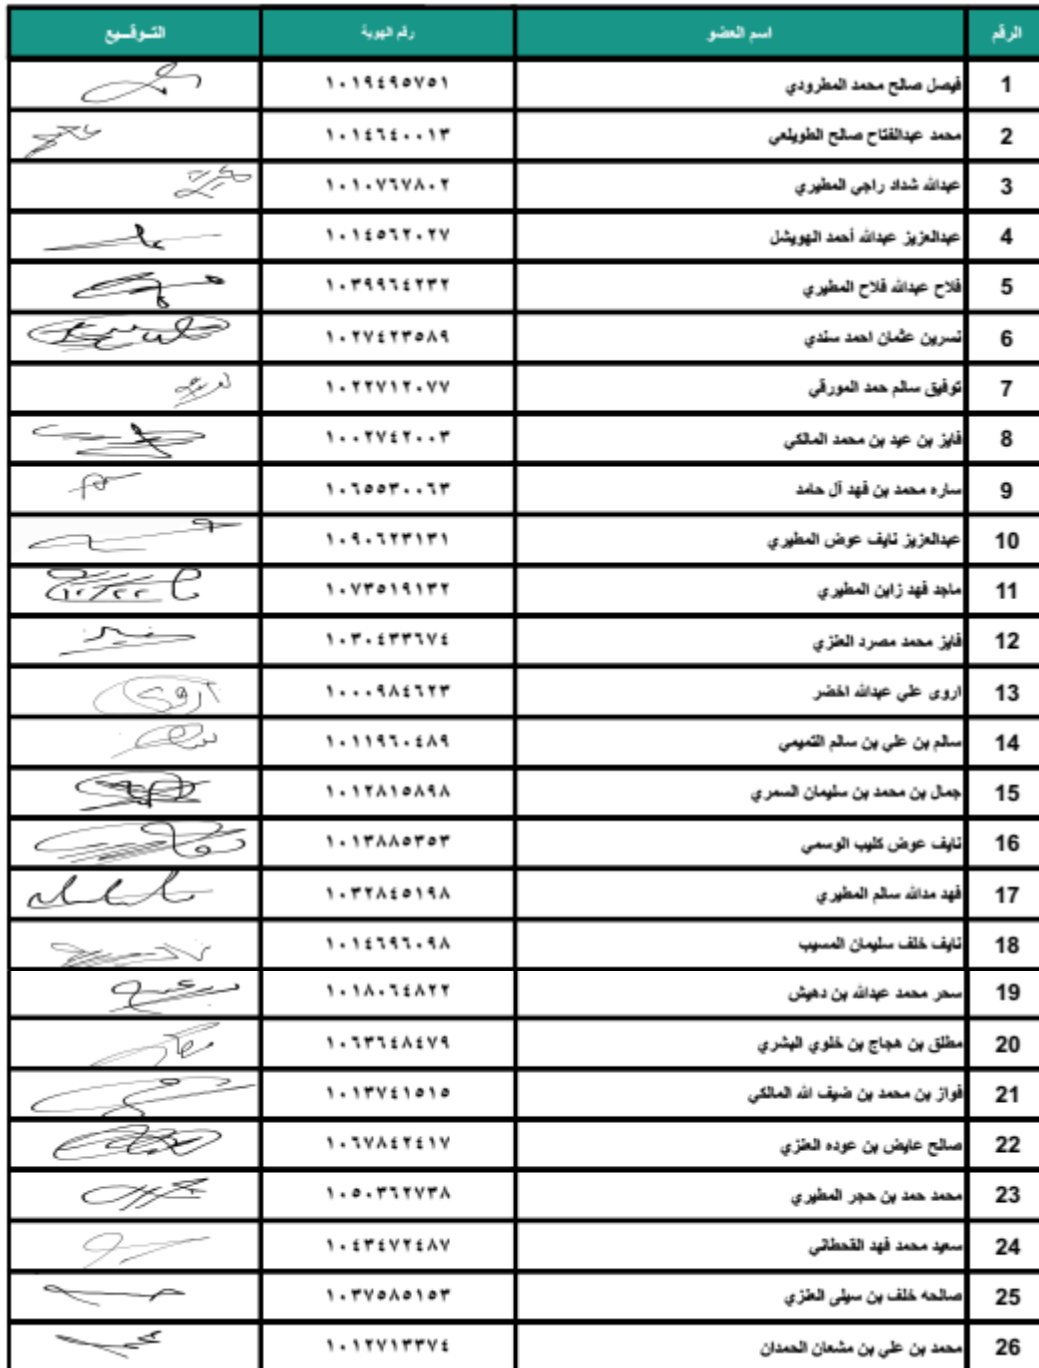 الرقم اسم العضو رقم الهوية التـوقـــيع
1 فيصل صالح محمد المطرودي ١٠١٩٤٩٥٧٥١
2 محمد عبدالفتاح صالح الطويلعي ١٠١٤٦٤٠٠١٣
3 عبدالله شداد راجي المطيري ١٠١٠٧٦٧٨٠٢
4 عبدالعزيز عبدالله أحمد الهويشل ١٠١٤٥٦٢٠٢٧
5 فلاح عبدالله فلاح المطيري ١٠٣٩٩٦٤٢٣٢
6 نسرين عثمان احمد سندي ١٠٢٧٤٢٣٥٨٩
7 توفيق سالم حمد المورقي ١٠٢٢٧١٢٠٧٧
8 فايز بن عيد بن محمد المالكي ١٠٠٢٧٤٢٠٠٣
9 ساره محمد بن فهد آل حامد ١٠٦٥٥٣٠٠٦٣
10 عبدالعزيز نايف عوض المطيري ١٠٩٠٦٢٣١٣١
11 ماجد فهد زابن المطيري ١٠٧٣٥١٩١٣٢
12 فايز محمد مصرد العنزي ١٠٣٠٤٣٣٦٧٤
13 اروى علي عبدالله اخضر ١٠٠٠٩٨٤٦٢٣ اروى
14 سالم بن علي بن سالم التميمي ١٠١١٩٦٠٤٨٩
15 جمال بن محمد بن سليمان السمري ١٠١٢٨١٥٨٩٨
16 نايف عوض كليب الوسمي ١٠١٣٨٨٥٣٥٣
17 فهد مدالله سالم المطيري ١٠٣٢٨٤٥١٩٨
18 نايف خلف سليمان المسيب ١٠١٤٦٩٦٠٩٨
19 سحر محمد عبدالله بن دهيش ١٠١٨٠٦٤٨٢٢
20 مطلق بن هجاج بن خلوي البشري ١٠٦٣٦٤٨٤٧٩
21 فواز بن محمد بن ضيف الله المالكي ١٠١٣٧٤١٥١٥
22 صالح عايض بن عوده العنزي ١٠٦٧٨٤٢٤١٧
23 محمد حمد بن حجر المطيري ١٠٥٠٣٦٢٧٣٨
24 سعيد محمد فهد القحطاني ١٠٤٣٤٧٢٤٨٧
25 صالحه خلف بن سيلى العنزي ١٠٣٧٥٨٥١٥٣
26 محمد بن علي بن مشعان الحمدان ١٠١٢٧١٣٣٧٤